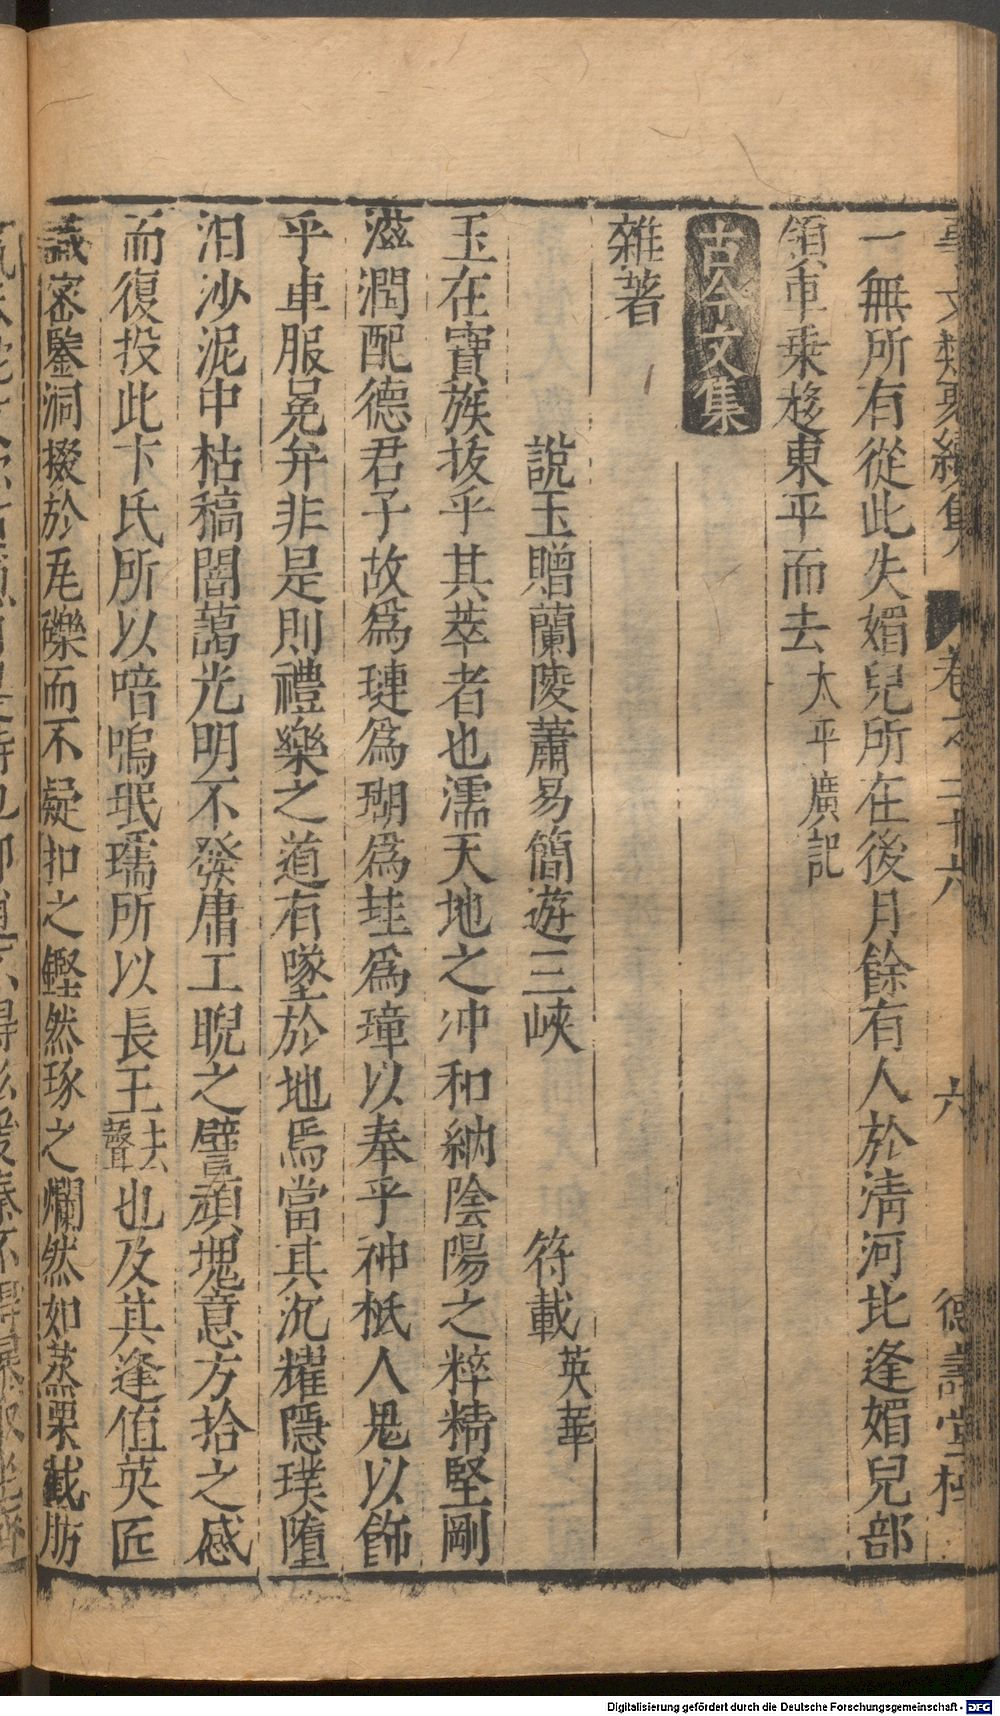 事文類聚續集 卷之二十六 六 德壽堂梓
一無所有從此失媚兒所在後月餘有人於淸河比逢媚兒部
領車乗趍東平而去太平廣記
古今文集
雜著
說玉贈蘭陵蕭易簡遊三峽 符載英華
玉在寶族拔乎其萃者也濡天地之冲和納陰陽之粹精堅剛
滋潤配德君子故爲璉爲瑚爲珪爲璋以奉乎神祇人鬼以飾
乎車服冕弁非是則禮樂之道有墜於地焉當其沉耀隱璞墮
汨沙泥中枯稿闇藹光明不發庸工睨之譬頑塊意方拾之惑
而復投此卞氏所以喑嗚珉瓀所以長王去聲也及其逢值英匠
識密鑒洞掇於瓦礫而不疑扣之鏗然琢之爛然如蒸栗截肪
Digitalisierung gefördert durch die Deutsche Forschungsgemeinschaft - DFG